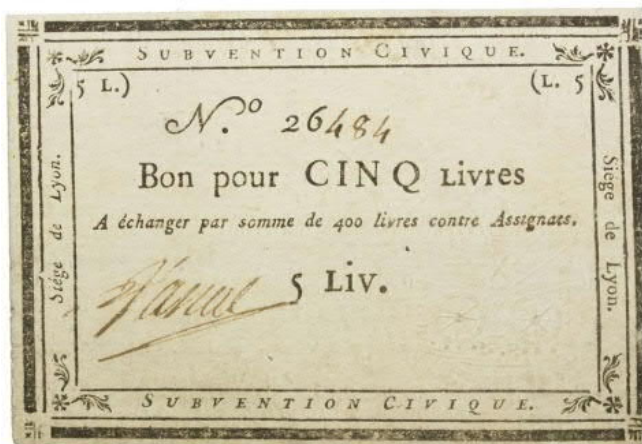 SUBVENTION CIVIQUE.
5 L.) (L. 5
N.º 26484
Siége de Lyon.
Bon pour CINQ Livres
A échanger par somme de 400 livres contre Assignats.
Siege de Lyon.
5 LIV.
SUBVENTION CIVIQUE.